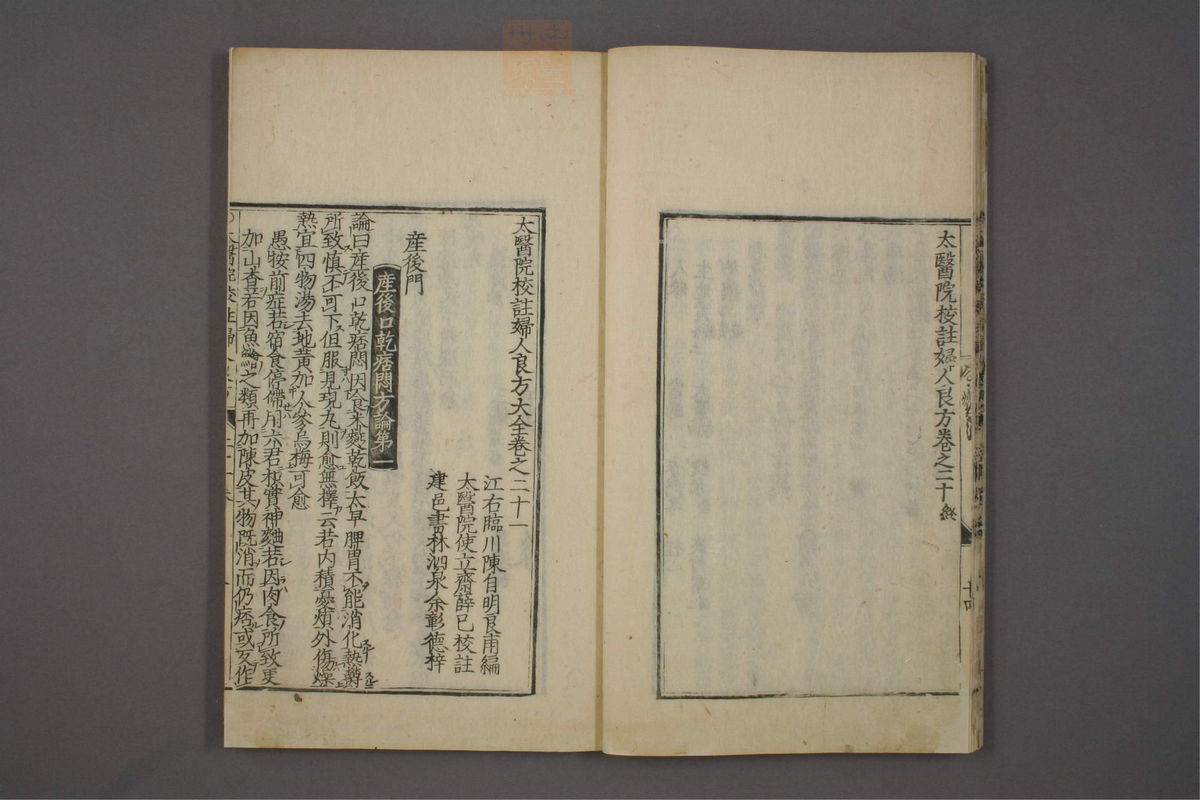 太醫院校註婦人良方卷之二十終
十四
太醫院校註婦人良方大全卷之二十一
江右臨川陳自明良甫編
太醫院使立齋薛己校註
建邑書林泗泉余彰德梓
産後門
産後口乾痞悶方論第一
論曰産後口乾痞悶因食米麪乾飯太早脾胃不能消化熱鬱
所致慎不可下但服見現丸則愈無擇云若内積憂煩外傷燥
熱宜四物湯去地黄加人參烏梅可愈
愚按前症若宿食停滯用六君枳實神麯若因肉食所致更
加山査若因魚鱠之類再加陳皮其物既消而仍痞或反作